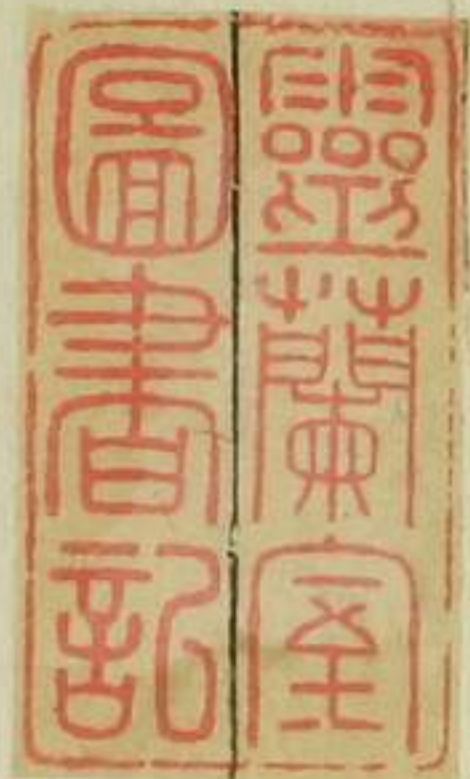 靈蘭室
圖書記